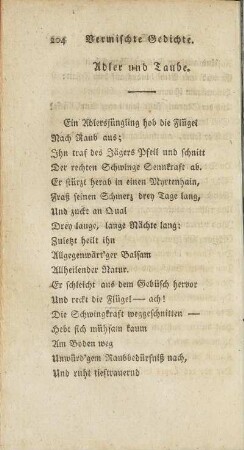 204 Vermischte Gedichte.
Adler und Taube.
Ein Adlersjüngling hob die Flügel
Nach Raub aus;
Ihn traf des Jägers Pfeil und schnitt
Der rechten Schwinge Sennkraft ab.
Er stürzt herab in einen Myrtenhain,
Fraß seinen Schmerz drey Tage lang,
Und zuckt an Qual
Drey lange, lange Nächte lang:
Zuletzt heilt ihn
Allgegenwärt'ger Balsam
Allheilender Natur.
Er schleicht aus dem Gebüsch hervor
Und reckt die Flügel — ach!
Die Schwingkraft weggeschnitten —
Hebt sich mühsam kaum
Am Boden weg
Unwürd'gem Raubbedürfniß nach,
Und ruht tieftrauernd